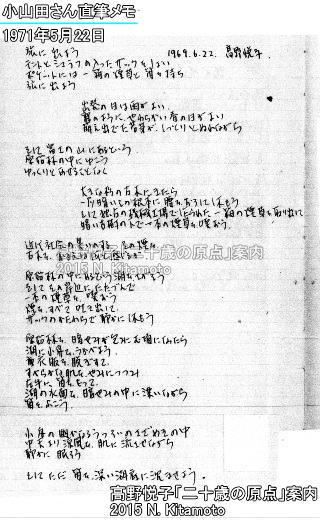 小山田さん直筆メモ
1971年5月22日
旅に出よう 1969.6.22. 高野悦子
テントとシュラフの入ったザックをしょい
ポケットには一箱の煙草と笛を持ち
旅に出よう
出発の日は雨がよい
霧のように、やわらかい春の雨がよい
萌え出でた若芽が、しっとりとぬれながら
そして富士の山にあるという
原始林の中にゆこう
ゆっくりとあせることなく
大きな杉の古木にきたら
一層暗いその根本に腰をおろして休もう
そして独占の機械工場で作られた一箱の煙草を取り出して
暗い古樹の下で一本の煙草を喫おう
近代社会の臭いのするその煙を
古木よ
原始林の中にあるという湖をさがそう
そしてその岸辺にたたずんで
一本の煙草を喫おう
煙をすべて吐き出して
ザックのかたわらで静かに休もう
原始林を暗やみが包みこむ頃になったら
湖に小舟をうかべよう
衣服を脱ぎすて
すべらかな肌をやみにつつみ
左手に笛をもって
湖の水面を暗やみの中に漂いながら
笛をふこう
小舟の幽かなるうつろいのさざめきの中
中天より涼風を肌に流させながら
静かに眠ろう
そしてただ笛を深い湖底に沈ませよう
高野悦子「二十歳の原点」案内
2015 N. Kitamoto
高野悦子「二十歳の原点」案内
2015 N. Kitamoto